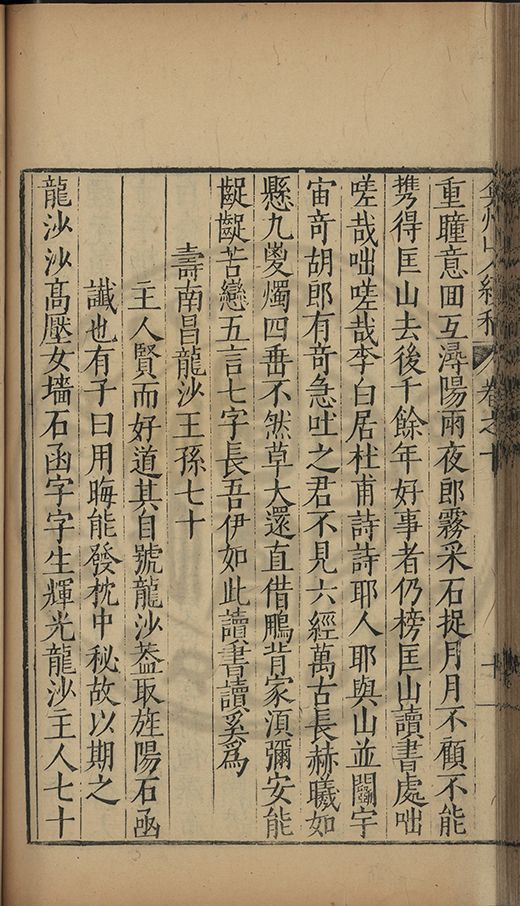 弇州山人續稿 卷之十 十
重瞳意田互潯陽雨夜郎霧采石捉月月不顧不能
携得匡山去後千餘年好事者仍榜匡山讀書處咄
嗟哉咄嗟哉李白居杜甫詩詩耶人耶與山並闢宇
宙奇胡郎有奇急吐之君不見六經萬古長赫曦如
懸九夔燭四垂不然草大還直借鵬背家湏彌安能
齪齪苦戀五言七字長吾伊如此讀書讀奚爲
壽南昌龍沙王孫七十
主人賢而好道其自號龍沙葢取旌陽石函
讖也有子曰用晦能發枕中秘故以期之
龍沙沙高壓女墻石函字字生輝光龍沙王人七十